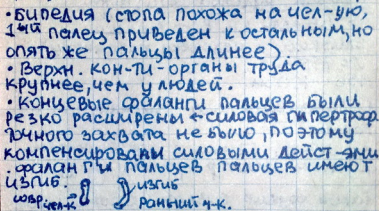 • Бипедия (стопа похожа на чел-ую,
1ый палец приведен к остальным, но
опять же пальцы длинее).
• Верхн. кон-ти-органы труда
крупнее, чем у людей.
• Концевые фаланги пальцев были
резко расширены ← силовая гипертроф.
точного захвата не было, поэтому
компенсированы силовыми дейст-ями
. фаланги пальцев пальцев имеют
изгиб.
совр. чел-к изгиб
Ранний ч-к.